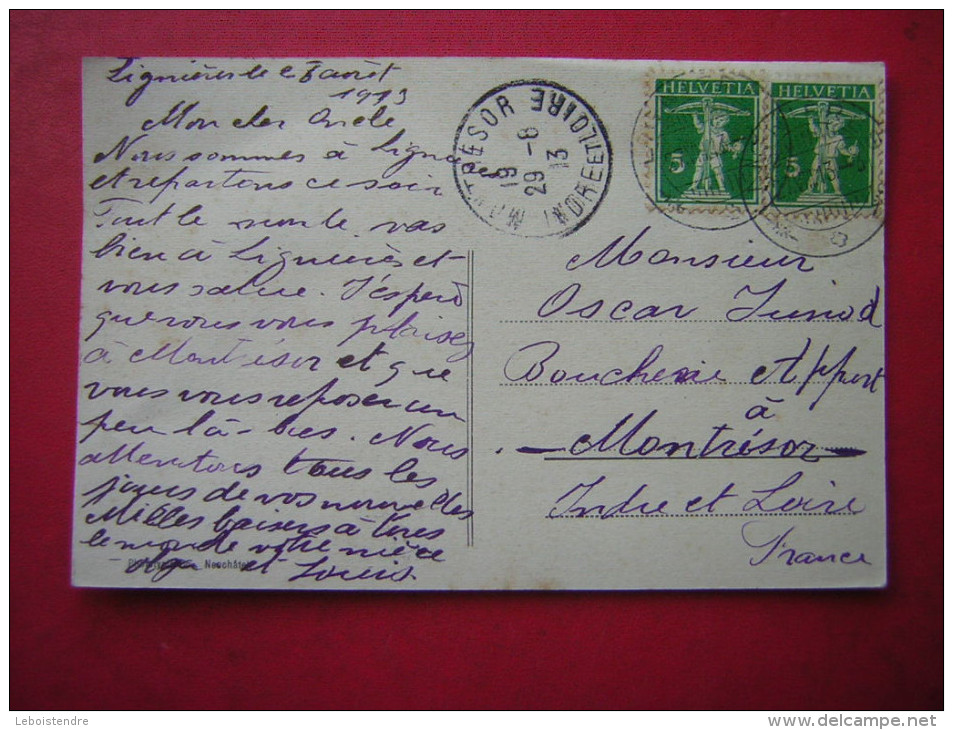 Lignières le août
1913
Mon cher Oncle
Nous sommes à Lignières
et repartons ce soir
Tout le monde vas
bien à Lignières et
vous salue. J'espère
que vous vous plaisez
à Montrésor et que
vous vous reposer un
peu là-bas. Nous
attentons tous les
jours de vos nouvelles
Milles baisers à tous
le monde votre nièce
et Louis.
Neuchâtel
MONTRÉSOR
INDRE ET LOIRE
19
29 -8
13
HELVETIA
5
HELVETIA
5
Monsieur
Oscar Junod
Boucherie Appert
à
Montrésor
Indre et Loire
France
Leboistendre
www.delcampe.net